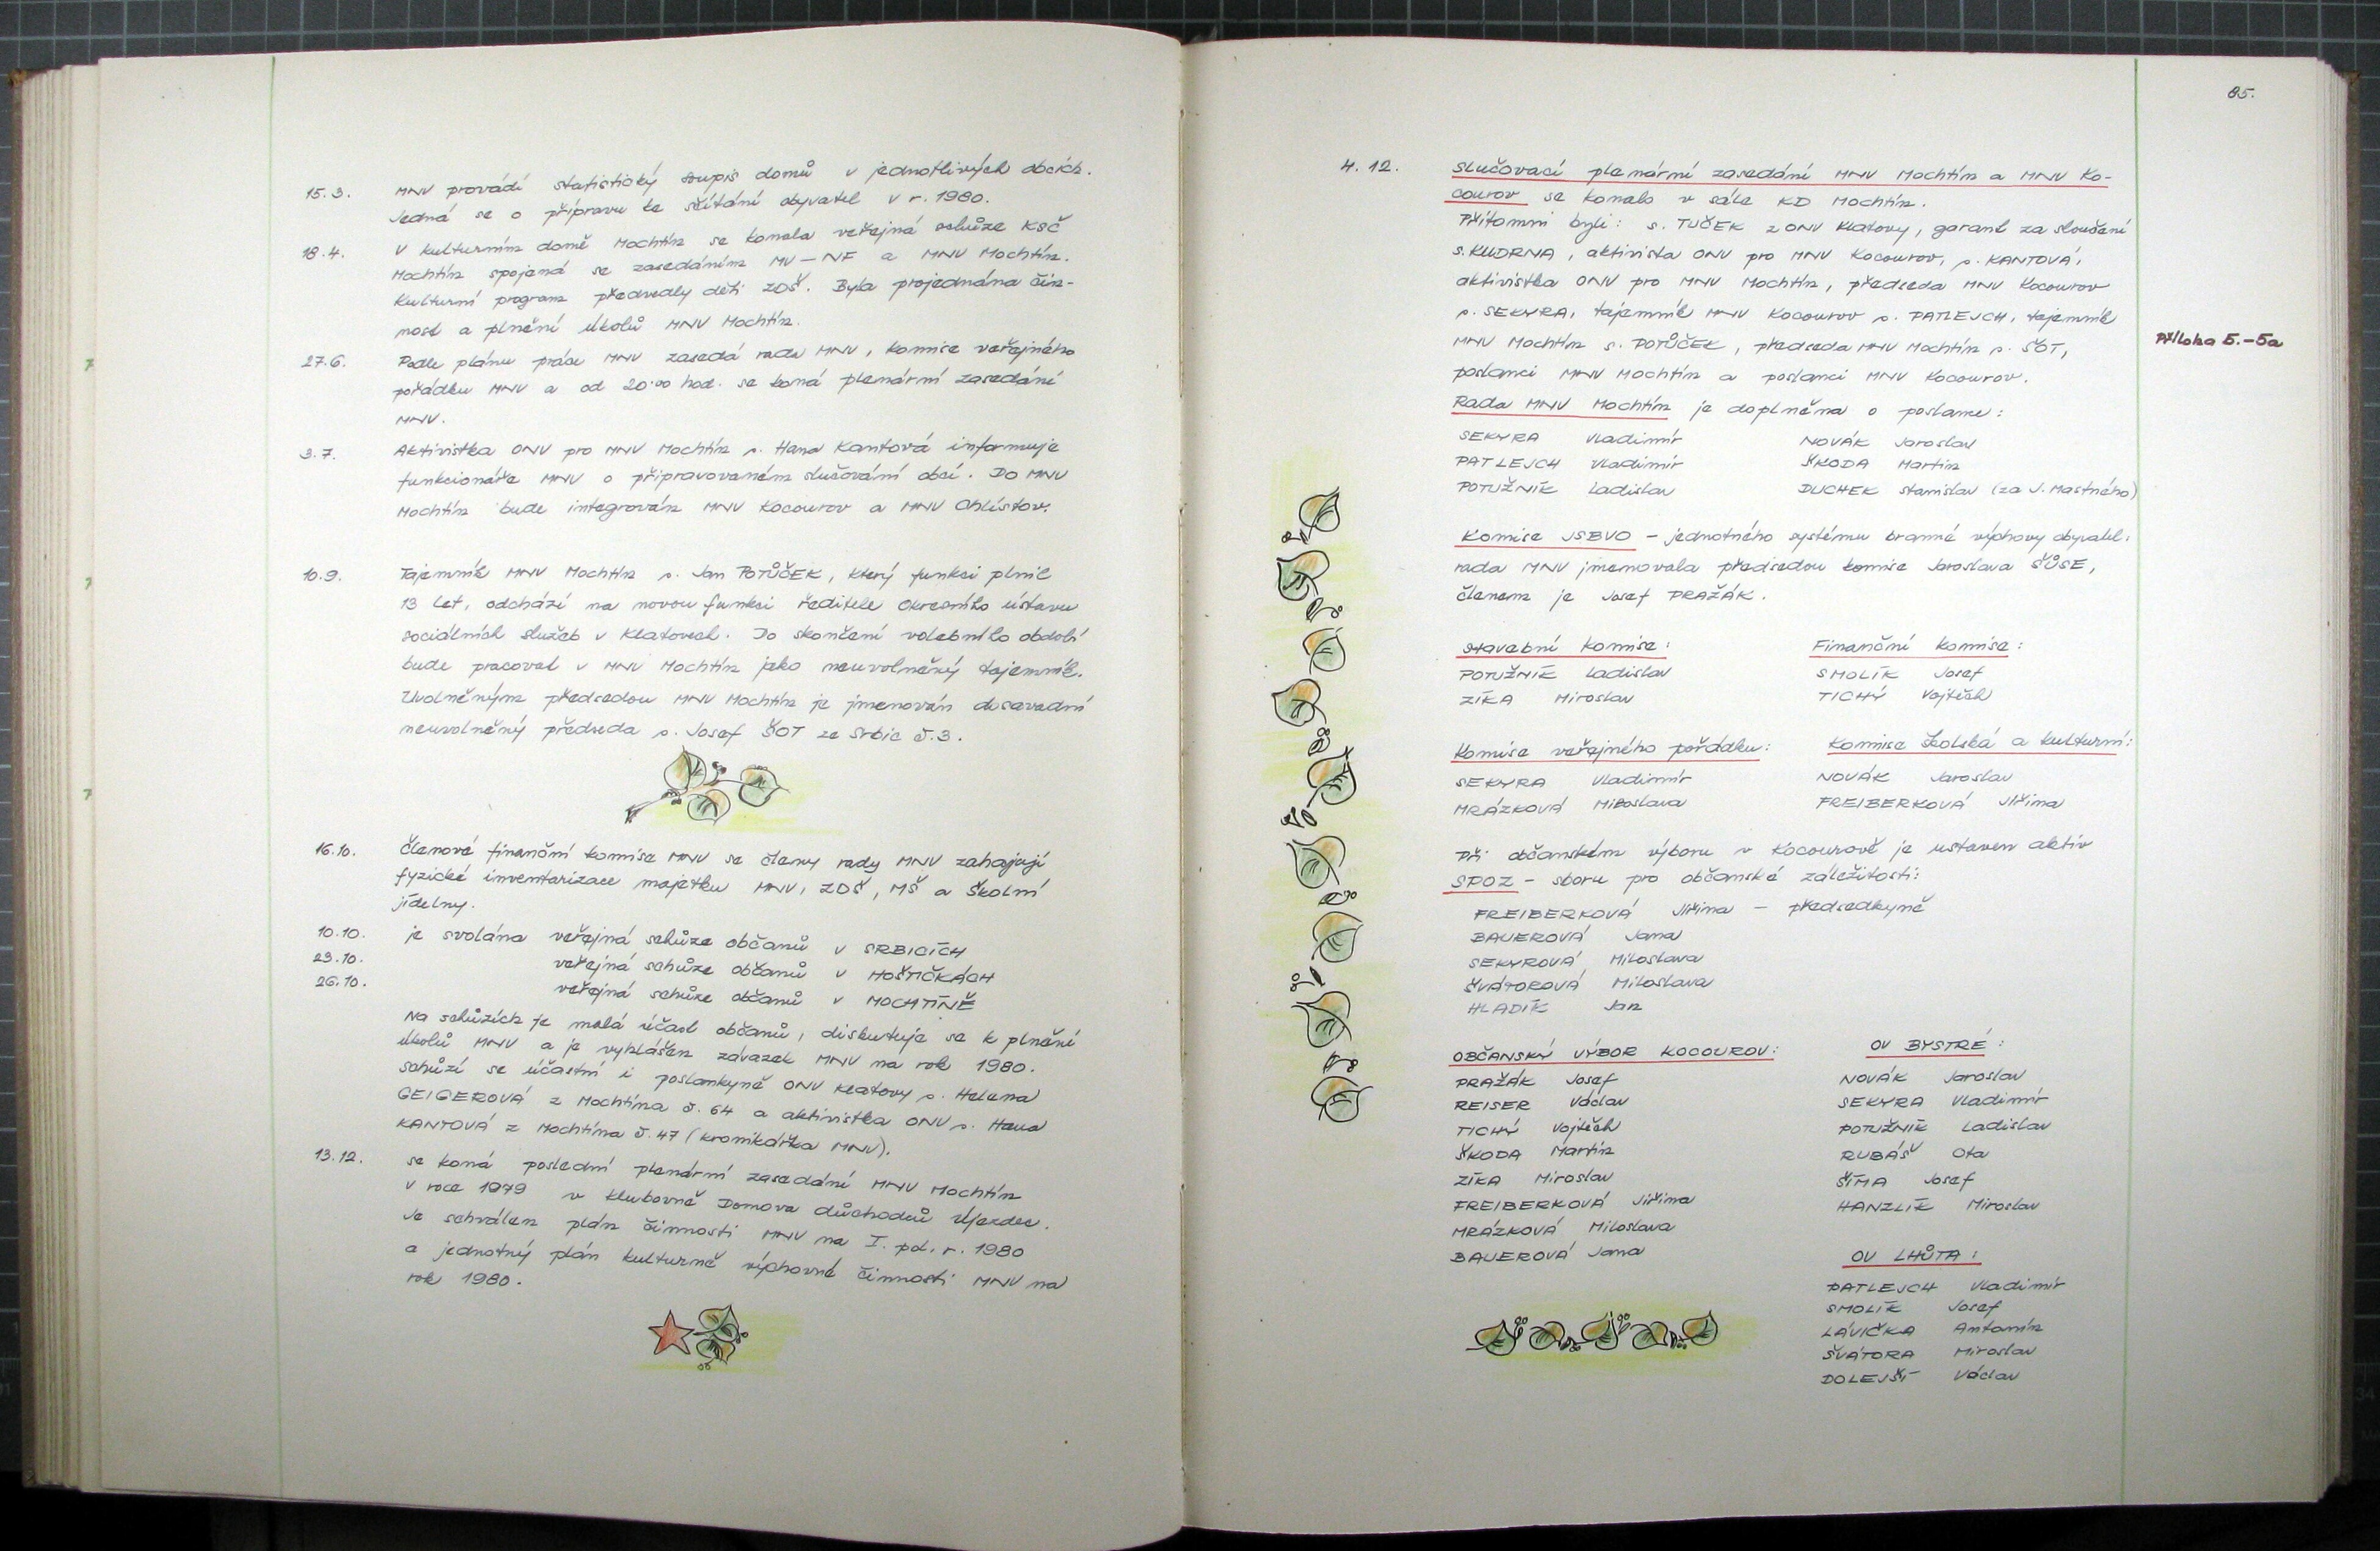 15.3. MNV provádí statistický soupis domů v jednotlivých obcích.
Jedná se o přípravu ke sčítání obyvatel v r. 1980.
18.4. V kulturním domě Mochtín se konala veřejná schůze KSČ
Mochtín spojená se zasedáním MV-NF a MNV Mochtín.
Kulturní program předvedly děti ZDŠ. Byla projednána čin-
nost a plnění úkolů MNV Mochtín.
27.6. Podle plánu práce MNV zasedá rada MNV, komise veřejného
pořádku MNV a od 20.00 hod. se koná plenární zasedání
MNV.
3.7. Aktivistka ONV pro MNV Mochtín s. Hana Kantová informuje
funkcionáře MNV o připravovaném slučování obcí. Do MNV
Mochtín bude integrován MNV Kocourov a MNV Chlístov.
10.9. Tajemník MNV Mochtín s. Jan POTŮČEK, který funkci plnil
13 let, odchází na novou funkci ředitele Okresního ústavu
sociálních služeb v Klatovech. Do skončení volebního období
bude pracovat v MNV Mochtín jako neuvolněný tajemník.
Uvolněným předsedou MNV Mochtín je jmenován dosavadní
neuvolněný předseda s. Josef ŠOT ze Srbic č.3.
16.10. Členové finanční komise MNV se členy rady MNV zahajují
fyzické inventarizace majetku MNV, ZDŠ, MŠ a školní
jídelny.
10.10. je svolána veřejná schůze občanů v SRBICÍCH
23.10. veřejná schůze občanů v HOŠTIČKÁCH
26.10. veřejná schůze občanů v MOCHTÍNĚ
Na schůzích je malá účast občanů, diskutuje se k plnění
úkolů MNV a je vyhlášen závazek MNV na rok 1980.
Schůzí se účastní i poslankyně ONV Klatovy s. Helena
GEIGEROVÁ z Mochtína č. 64 a aktivistka ONV s. Hana
KANTOVÁ z Mochtína č. 47 (kronikářka MNV).
13.12. se koná poslední plenární zasedání MNV Mochtín
v roce 1979 v klubovně Domova důchodců Újezdec.
Je schválen plán činnosti MNV na I. pol. r. 1980
a jednotný plán kulturně výchovné činnosti MNV na
rok 1980.
85.
4.12. Slučovací plenární zasedání MNV Mochtín a MNV Ko-
courov se konalo v sále KD Mochtín.
Přítomni byli: s. TUČEK z ONV Klatovy, garant za sloučení
s. KUDRNA, aktivista ONV pro MNV Kocourov, s. KANTOVÁ,
aktivistka ONV pro MNV Mochtín, předseda MNV Kocourov
s. SEKYRA, tajemník MNV Kocourov s. PATLEJCH, tajemník
MNV Mochtín s. POTŮČEK, předseda MNV Mochtín s. ŠOT,
Příloha 5.-5a
poslanci MNV Mochtín a poslanci MNV Kocourov.
Rada MNV Mochtín je doplněna o poslance:
SEKYRA Vladimír NOVÁK Jaroslav
PATLEJCH Vladimír ŠKODA Martin
POTUŽNÍK Ladislav DUCHEK Stanislav (za J. Mastného)
Komise JSBVO - jednotného systému branné výchovy obyvatel.
rada MNV jmenovala předsedou komise Jaroslava ŠŮSE,
členem je Josef PRAŽÁK.
Stavební komise: Finanční komise:
POTUŽNÍK Ladislav SMOLÍK Josef
ZÍKA Miroslav TICHÝ Vojtěch
Komise veřejného pořádku: Komise školská a kulturní:
SEKYRA Vladimír NOVÁK Jaroslav
MRÁZKOVÁ Miloslava FREIBERKOVÁ Jiřina
Při občanském výboru v Kocourově je ustaven aktiv
SPOZ - sboru pro občanské záležitosti:
FREIBERKOVÁ Jiřina - předsedkyně
BAUEROVÁ Jana
SEKYROVÁ Miloslava
ŠVÁTOROVÁ Miloslava
HLADÍK Jan
OBČANSKÝ VÝBOR KOCOUROV: OV BYSTRÉ:
PRAŽÁK Josef NOVÁK Jaroslav
REISER Václav SEKYRA Vladimír
TICHÝ Vojtěch POTUŽNÍK Ladislav
ŠKODA Martin RUBÁŠ Ota
ZÍKA Miroslav ŠÍMA Josef
FREIBERKOVÁ Jiřina HANZLÍK Miroslav
MRÁZKOVÁ Miloslava
BAUEROVÁ Jana OV LHŮTA:
PATLEJCH Vladimír
SMOLÍK Josef
LÁVIČKA Antonín
ŠVÁTORA Miroslav
DOLEJŠÍ Václav